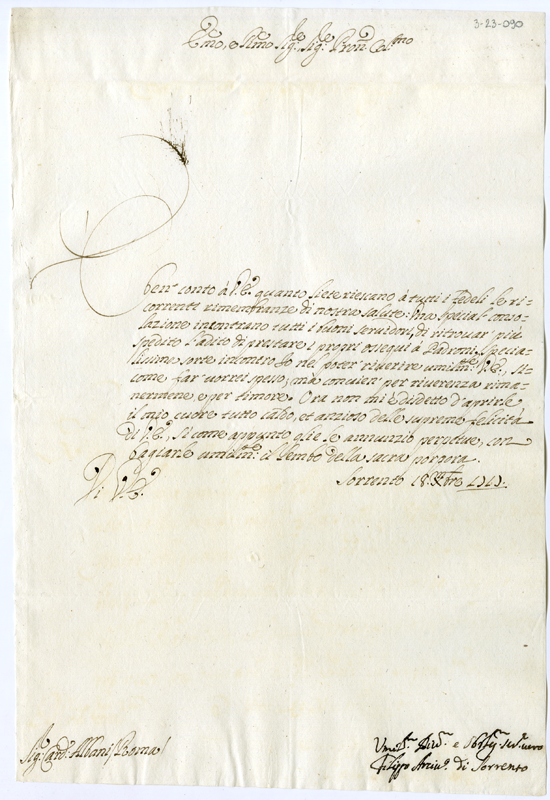 3-23-090
Em̃o, e R̃mo Sig.r, Sig.r Pron Col.mo
conto à V.E. quanto liete riescano à tutti i fedeli le ri-
correnti rimembranze di nostra salute: Una special conso-
lazione incontrano tutti i buoni servidori, di ritrovar più
spedito l'adito di tratare i propri ossequi à Padroni. Specia-
lissime sorte incontro Io nel poter riverire V.E., si
come far vorrei spesso, mà convien per riverenza rima-
nermene, e per timore. Ora non mi è disdetto d'aprirle
il mio cuore tutto caldo, et anzioso delle supreme felicità
di V.E., si come appunto glie le annunzio perpetue, con
bagiare il lembo della sacra porpora.
Di V.E.
Sorrento 18. Xbre
Sig.r Card. Albani Roma
e servo vero
Filippo Arciv.o di Sorrento